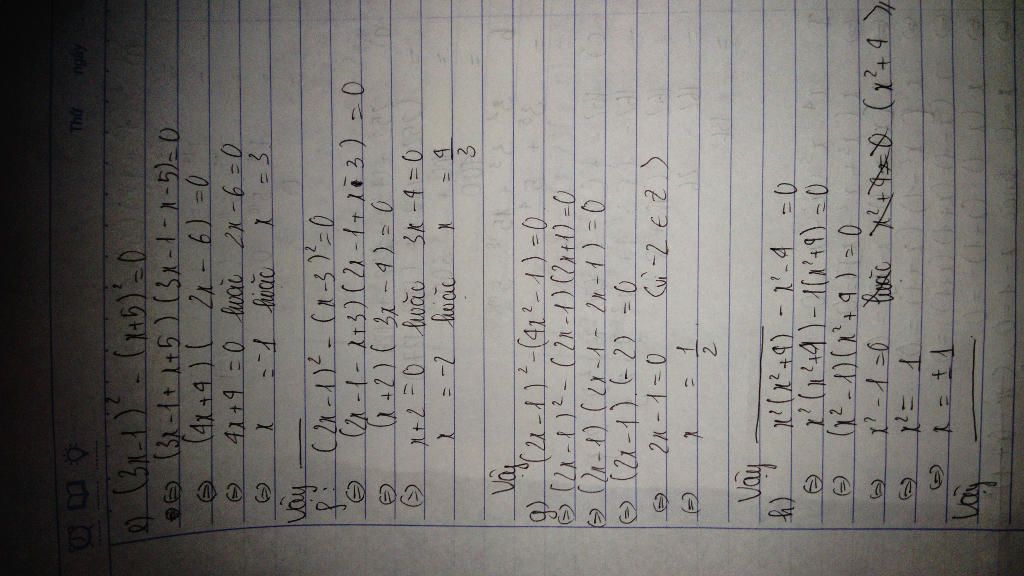 Thứ ngày
e) (3x-1)² - (x+5)² = 0
⇔ (3x-1+x+5)(3x-1-x-5)=0
⇔ (4x+4)( 2x-6) = 0
⇔ 4x+4 = 0 hoặc 2x-6=0
⇔ x = -1 hoặc x = 3
Vậy
f: (2x-1)² - (x-3)² = 0
⇔ (2x-1-x+3)(2x-1+x-3) = 0
⇔ (x+2)(3x-4) = 0
⇔ x+2 = 0 hoặc 3x-4=0
x = -2 hoặc x = 4/3
Vậy
g) (2x-1)² - (4x²-1) = 0
⇔ (2x-1)² - (2x-1)(2x+1)=0
⇔ (2x-1)(2x-1-2x-1) = 0
⇔ (2x-1)(-2) = 0
⇔ 2x-1=0 (vì -2 ∈ Z)
⇔ x = 1/2
Vậy
h) x²(x²+4) - x²-4 = 0
⇔ x²(x²+4)-1(x²+4)=0
⇔ (x²-1)(x²+4) = 0
⇔ x²-1=0 hoặc x²+4=0 (x²+4 >,
⇔ x² = 1
⇔ x = ±1
Vậy